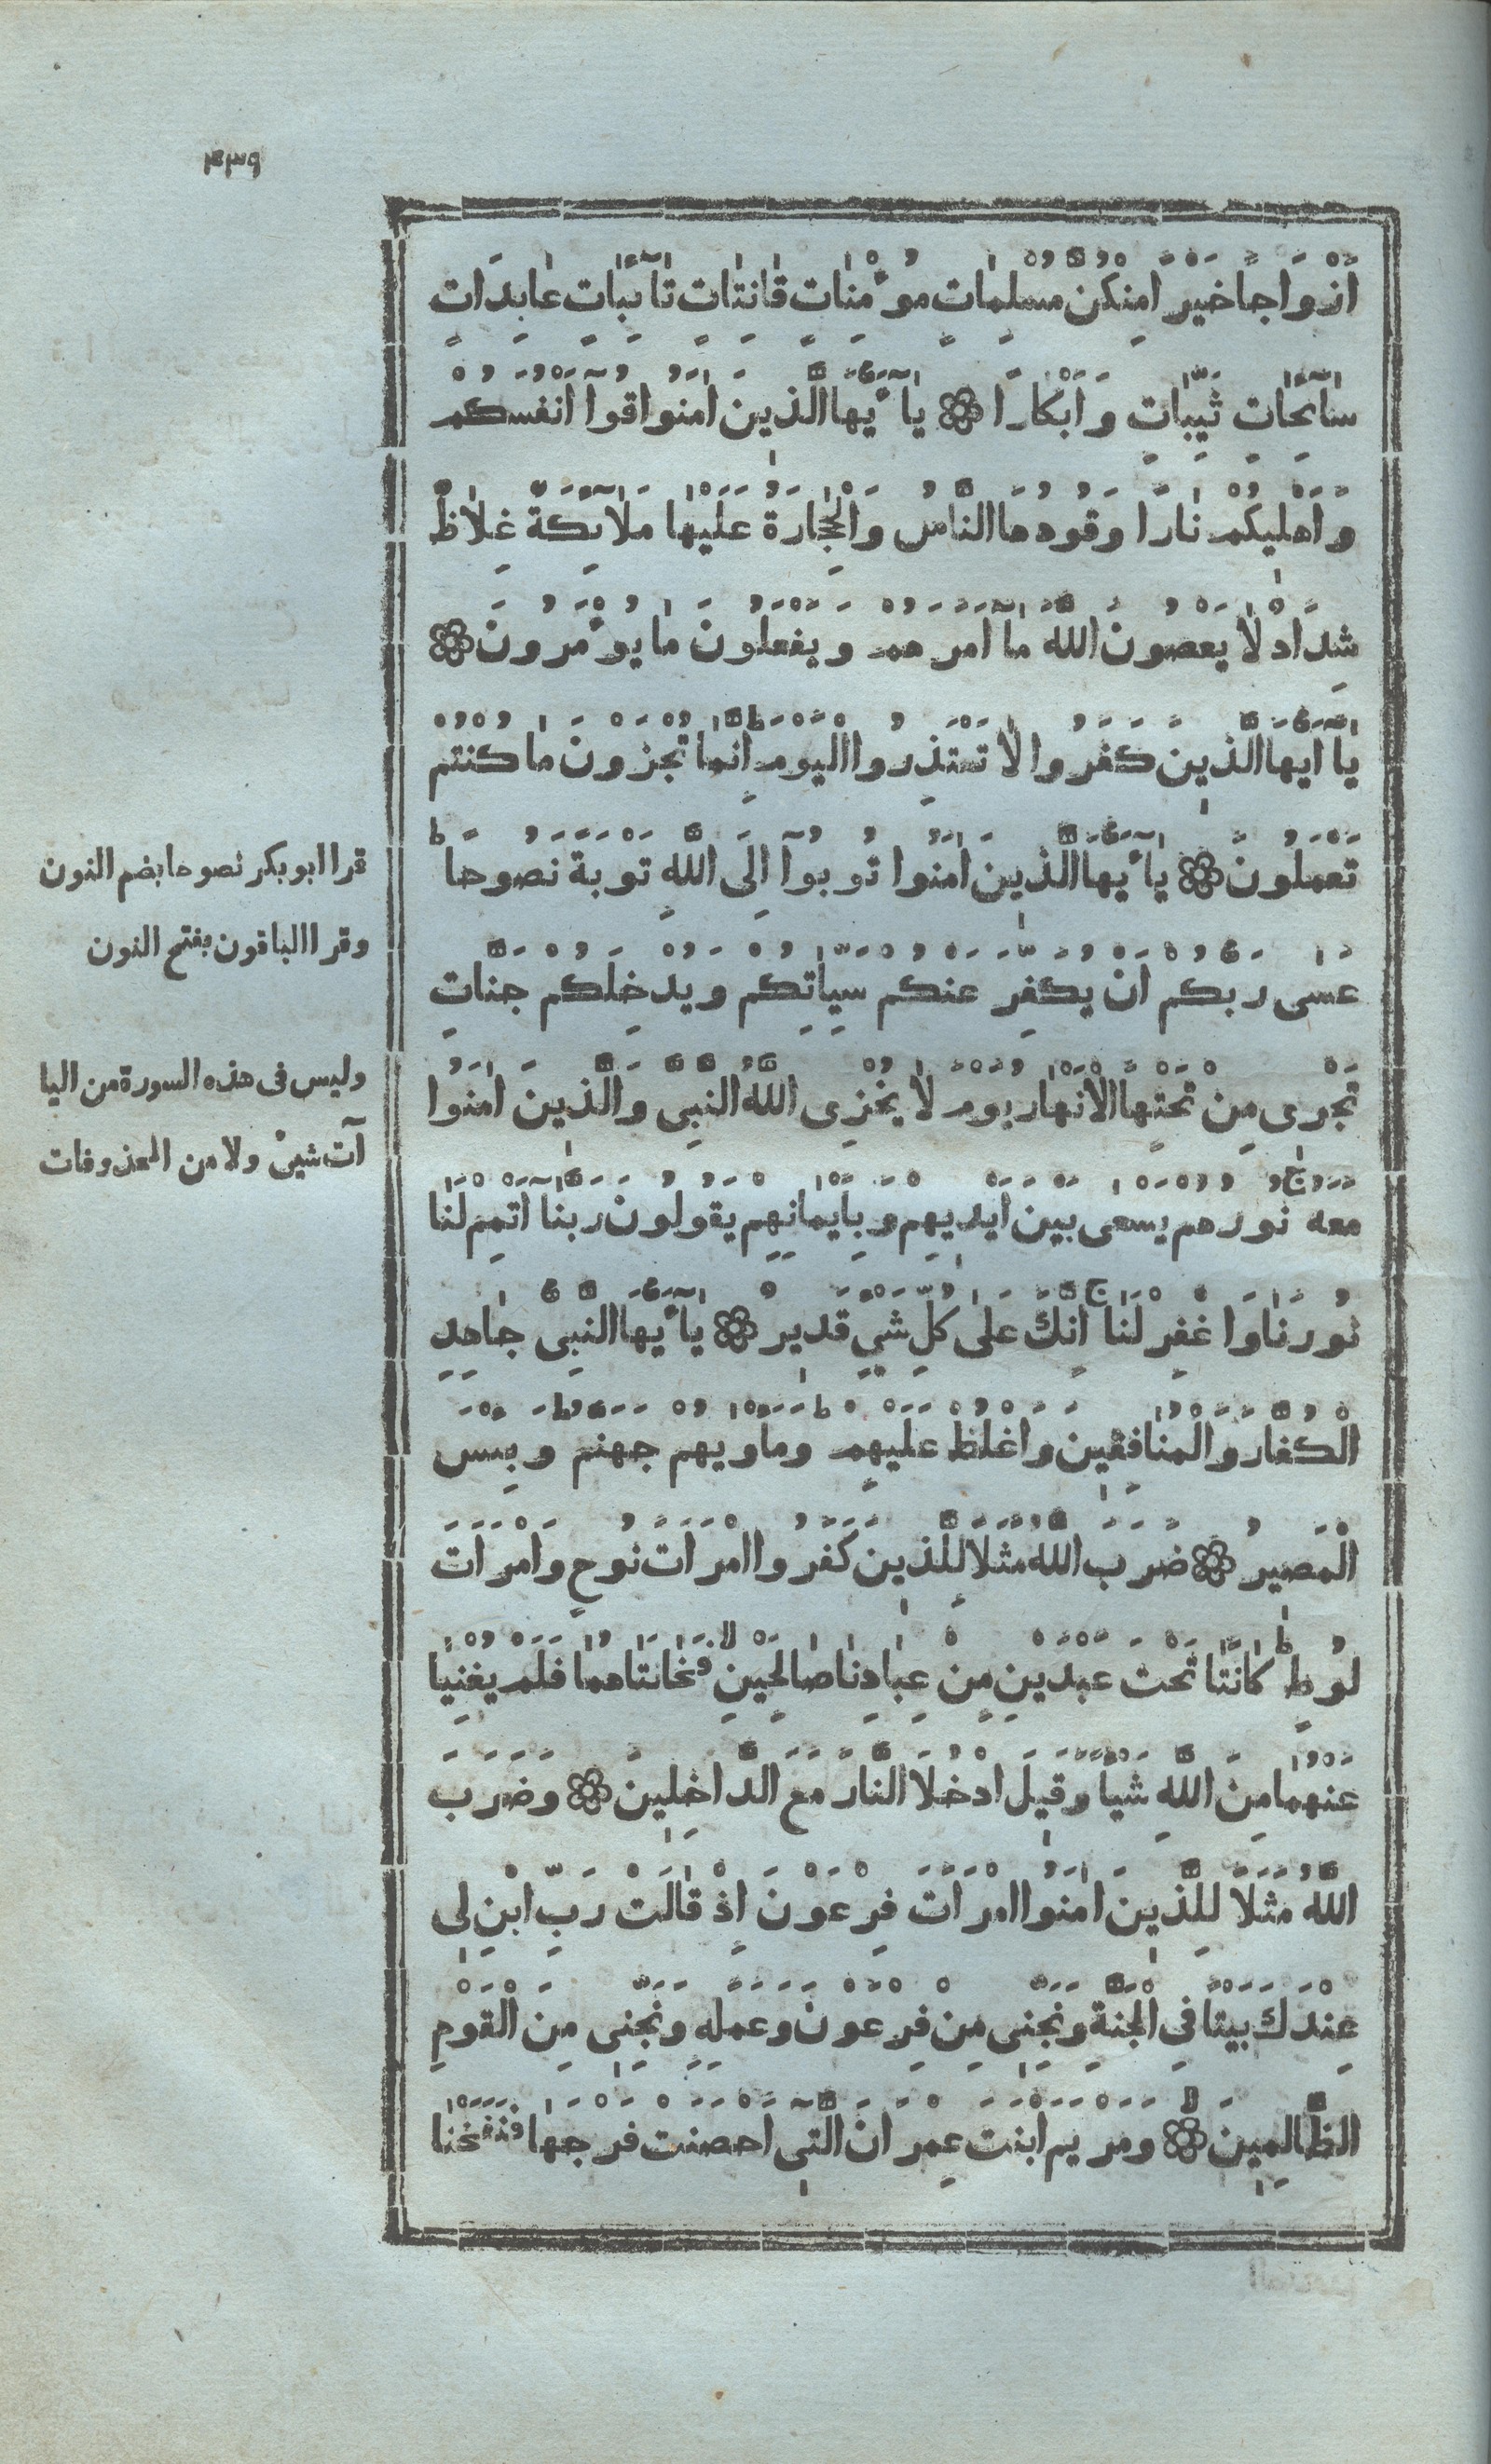 ٤٣٩
اَزْوَاجًا خَيْرًا مِنْكُنَّ مُسْلِمَاتٍ مُؤْمِنَاتٍ قَانِتَاتٍ تَآئِبَاتٍ عَابِدَاتٍ
سَآئِحَاتٍ ثَيِّبَاتٍ وَاَبْكَارًا ۞ يَآ أَيُّهَا الَّذِينَ اٰمَنُوا قُوآ اَنْفُسَكُمْ
وَاَهْلِيكُمْ نَارًا وَقُودُهَا النَّاسُ وَالْحِجَارَةُ عَلَيْهَا مَلَآئِكَةٌ غِلَاظٌ
شِدَادٌ لَا يَعْصُونَ اللّٰهَ مَآ اَمَرَهُمْ وَيَفْعَلُونَ مَا يُؤْمَرُونَ ۞
يَآ اَيُّهَا الَّذِينَ كَفَرُوا لَا تَعْتَذِرُوا الْيَوْمَ ط اِنَّمَا تُجْزَوْنَ مَا كُنْتُمْ
تَعْمَلُونَ ۞ يَآ أَيُّهَا الَّذِينَ اٰمَنُوا تُوبُوآ اِلَى اللّٰهِ تَوْبَةً نَصُوحًا ط
عَسٰى رَبُّكُمْ اَنْ يُكَفِّرَ عَنْكُمْ سَيِّاٰتِكُمْ وَيُدْخِلَكُمْ جَنَّاتٍ
تَجْرِى مِنْ تَحْتِهَا الْاَنْهَارُ يَوْمَ لَا يُخْزِى اللّٰهُ النَّبِىَّ وَالَّذِينَ اٰمَنُوا
مَعَهُ ج نُورُهُمْ يَسْعٰى بَيْنَ اَيْدِيهِمْ وَبِاَيْمَانِهِمْ يَقُولُونَ رَبَّنَآ اَتْمِمْ لَنَا
نُورَنَا وَاغْفِرْ لَنَا ج اِنَّكَ عَلٰى كُلِّ شَىْءٍ قَدِيرٌ ۞ يَآ أَيُّهَا النَّبِىُّ جَاهِدِ
الْكُفَّارَ وَالْمُنَافِقِينَ وَاغْلُظْ عَلَيْهِمْ ط وَمَاْوٰيهُمْ جَهَنَّمُ ط وَبِئْسَ
الْمَصِيرُ ۞ ضَرَبَ اللّٰهُ مَثَلًا لِلَّذِينَ كَفَرُوا امْرَاَتَ نُوحٍ وَامْرَاَتَ
لُوطٍ ط كَانَتَا تَحْتَ عَبْدَيْنِ مِنْ عِبَادِنَا صَالِحَيْنِ لا فَخَانَتَاهُمَا فَلَمْ يُغْنِيَا
عَنْهُمَا مِنَ اللّٰهِ شَيْاً وَقِيلَ ادْخُلَا النَّارَ مَعَ الدَّاخِلِينَ ۞ وَضَرَبَ
اللّٰهُ مَثَلًا لِلَّذِينَ اٰمَنُوا امْرَاَتَ فِرْعَوْنَ اِذْ قَالَتْ رَبِّ ابْنِ لِى
عِنْدَكَ بَيْتًا فِى الْجَنَّةِ وَنَجِّنِى مِنْ فِرْعَوْنَ وَعَمَلِهِ وَنَجِّنِى مِنَ الْقَوْمِ
الظَّالِمِينَ ۞ وَمَرْيَمَ ابْنَتَ عِمْرَانَ الَّتِىٓ اَحْصَنَتْ فَرْجَهَا فَنَفَخْنَا
قرا ابو بكر نصوحا بضم النون
وقرا الباقون بفتح النون
وليس فى هذه السورة من اليا
آت شىْ ولا من المحذوفات